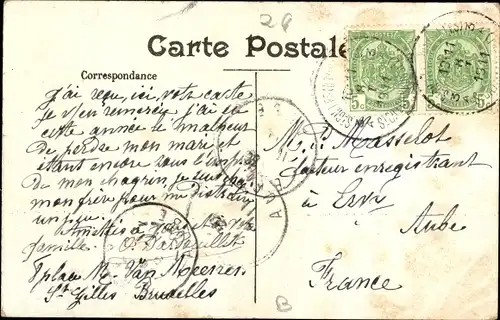 29
Carte Postale
Correspondance
j'ai reçu, ici, votre carte
je v/s en remercie, j'ai eu
cette année le malheur
de perdre mon mari et
étant encore sous l'
de mon chagrin, je
mon frère pour me distraire
un peu.
Amitiés à v/s et
famille
1 place M. Van Meenen
St Gilles Bruxelles
M. P. Masselot
facteur enregistrant
à Ervy
Aube
France
B